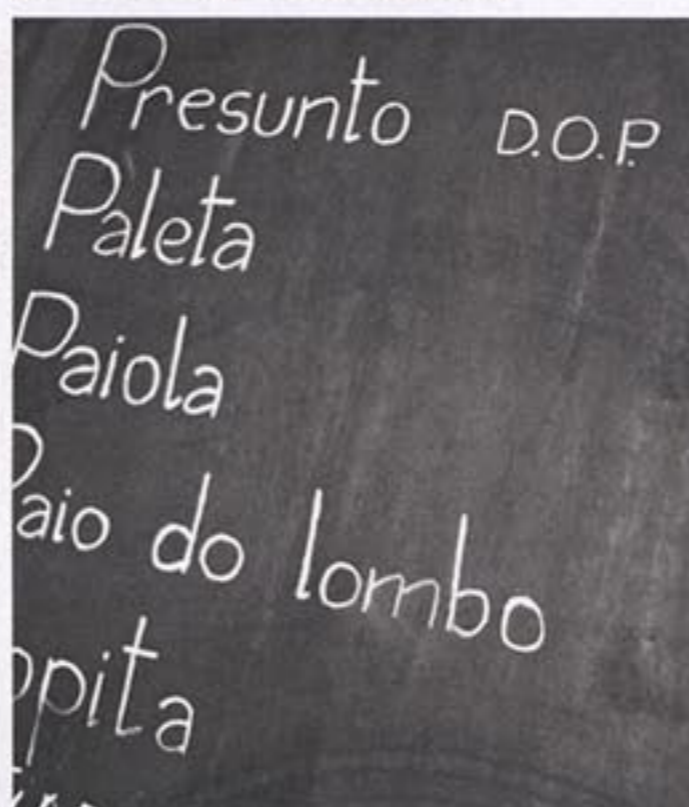 Presunto D.O.P.
Paleta
Paiola
Paio do lombo